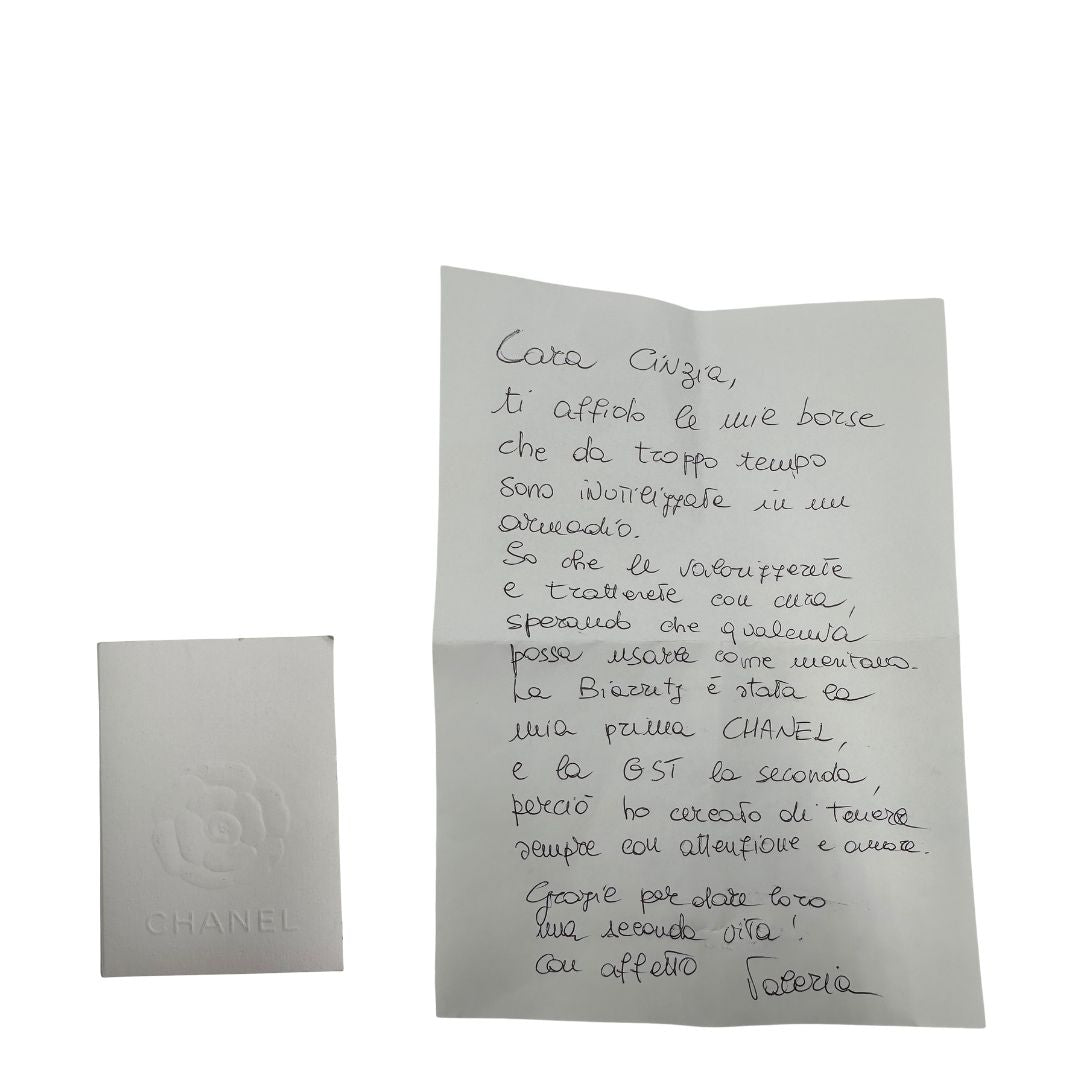 Cara Cinzia,
ti affido le mie borse
che da troppo tempo
sono inutilizzate in un
armadio.
So che le valorizzerete
e tratterete con cura,
sperando che qualcuna
possa usare come meritano.
La Biarritz è stata la
mia prima CHANEL,
e la GST la seconda,
perciò ho cercato di tenere
sempre con attenzione e amore.
Grazie per dare loro
una seconda vita!
con affetto Valeria
CHANEL